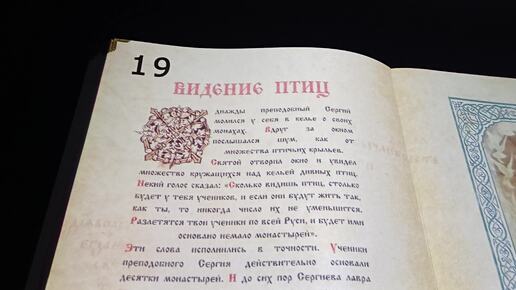 19
ВИДЕНИЕ ПТИЦ
Однажды преподобный Сергий
молился у себя в келье о своих
монахах. Вдруг за окном
послышался шум, как от
множества птичьих крыльев.
Святой отворил окно и увидел
множество кружащихся над кельей дивных птиц.
Некий голос сказал: «Сколько видишь птиц, столько
будет у тебя учеников, и если они будут жить так,
как ты, то никогда число их не уменьшится.
Разлетятся твои ученики по всей Руси, и будет ими
основано немало монастырей».
Эти слова исполнились в точности. Ученики
преподобного Сергия действительно основали
десятки монастырей. И до сих пор Сергиева лавра